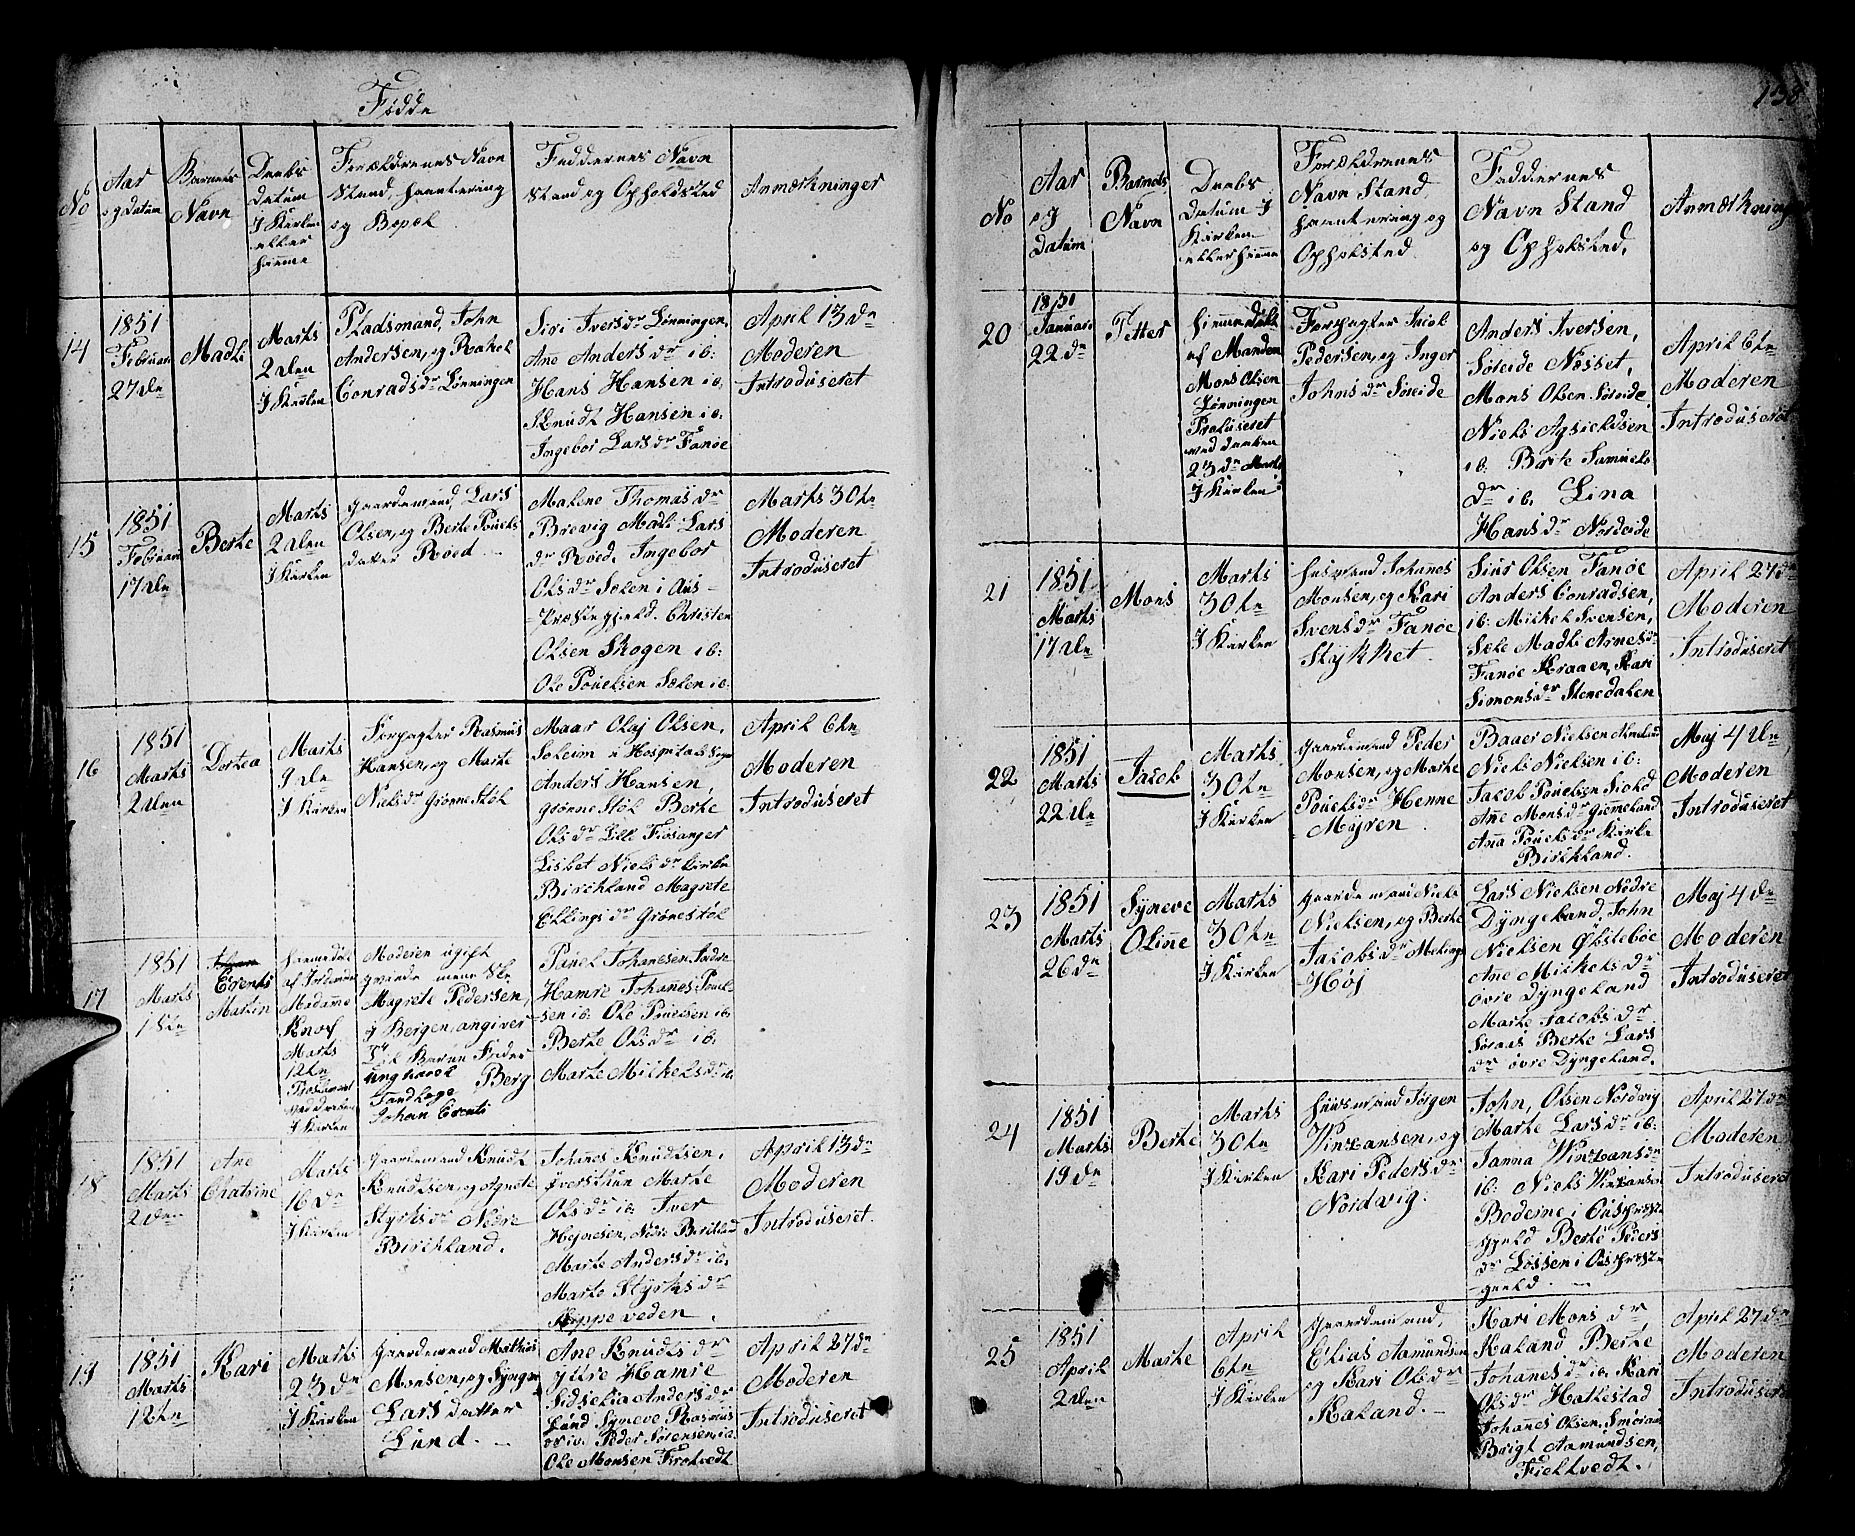 Fødde
No
Aar
og Datum
Barnets
Navn
Daabs
datum
I Kirken
eller
hiemme
Forældrenes Navn
Stand, haantering
og Bopæl
Faddernes Navn
Stand og Opholdsted
Anmærkninger
14
1851
Februari
27de
Madli
Marts
2den
I Kirken
Pladsmand, John
Andersen, og Rakel
Conradsdr Lønningen
Siri Iversdr Lønningen,
Ane Andersdr ib:
Hans Hansen ib:
Knudt Hansen ib:
Ingebor Larsdr Fanøe
April 13de
Moderen
Introduseret
15
1851
Februari
17den
Berte
Marts
2den
I Kirken
gaardemand, Lars
Olsen, og Berte Pouels
datter Røed
Malene Thomasdr
Brevig Madli Lars
dr Røed, Ingebor
Olsdr i Aus-
Præstegield. Christen
Olsen Skogen ib:
Ole Pouelsen Sælen ib:
Marts 30te
Moderen
Introduseret
16
1851
Marts
2den
Dortea
Marts
9de
I Kirken
Forpagter Rasmus
Hansen, og Marte
Nielsdr Grønne Støl
Olaj Olsen,
Soleim
Anders Hansen,
grønne Støl Berte
Olsdr Lille Fiosanger
Lisbet Nielsdr Kirke
Birchland Magrete
Ellingsdr Grønestøl
April 6te
Moderen
Introduseret
17
1851
Marts
1ste
Erents
Martin
hiemmedøbt
af Jordemoder
Madamme
Knof
Marts
12te
med daaben
I Kirken
Moderen ugift
qvinde
Magrete Pedersen,
af Bergen, angiver
til Barne Fader
ung karl Berg
Johan Erents
Pouel Johanesen, Indre
Hamre Johanes Pouel-
sen ib: Ole Pouelsen ib:
Berte Olsdr ib:
Marte Mikelsdr ib
18
1851
Marts
2den
Ane
Chatrine
Marts
16de
I Kirken
gaardemand Knudt
Knudtsen, og Agnete
Styrksdr Nedre
Birchland.
Johanes Knudtsen,
øverstuun Marte
Olsdr ib: Iver
Hejnesen, Nedre Birchland
Marte Andersdr ib:
Marte Styrksdr
Skeppeveden.
April 13de
Moderen
Introduseret.
19
1851
Marts
12te
Kari
Marts
23de
I Kirken
gaardemand Mathias
Monsen, og Synger
Lars datter
Lund.
Ane Knudtsdr
ytre Hamre
Sidselia Andersdr
Lund Syneve Rasmus
dr ib. Peder Sørensen, ib.
Ole Monsen Tirkvedt
April 27de
Moderen
Introduseret
138
No
Aar
og
Datum
Barnets
Navn
Daabs
Datum I
Kirken
eller hiemme
Forældrenes
Navn Stand
haantering og
Opholsted
Faddernes
Navn Stand
og Opholsted,
Anmærkninge
20
1851
Januari
22de
Petter
hiemmedøbt
af Manden
Mons Olsen
Lønningen
Prokuseret
med daaben
23de Marts
I Kirken
Forpagter Jacob
Pedersen, og Inger
Johnsdr Søreide
Anders Iversen,
Søreide Næsset,
Mons Olsen Søreide
Niels Agsieldsen
ib: Brite Samuels
dr ib. Lina
Hansdr Nordeide
April 6te
Moderen
Introduseret
21
1851
Marts
17de
Mons
Marts
30te
I Kirken
husmand Johanes
Monsen, og Kari
Svensdr Fanøe
Stykket.
Siur Olsen Fanøe
Anders Conradsen,
ib: Mickel Svensen,
Madli Arnesdr
Fanøe Kraaen, Kari
Simonsdr Stenedalen
April 27de
Moderen
Introduseret
22
1851
Marts
22de
Jacob
Marts
30te
I Kirken
gaardemand Peder
Monsen, og Marte
Pouelsdr Henne
Myren.
Baaer Nielsen
Niels Nielsen ib:
Jacob Pouelsen
Ane Monsdr
Ana Pouelsdr Kirke
Birchland.
Maj 4de
Moderen
Introduseret
23
1851
Marts
26de
Syneve
Oline
Marts
30te
I Kirken
gaardemand Niels
Nielsen, og Berte
Jacobsdr
Høj
Lars Nielsen Nedre
Dyngeland, John
Nielsen Øvstebøe
Ane Mickelsdr
øvre Dyngeland
Marte Jacobsdr
Søraas Berte Lars
dr øvre Dyngeland.
Maj 4de
Moderen
Introduseret
24
1851
Marts
19de
Berte
Marts
30te
I Kirken
husmand Jørgen
Vinzansen, og
Kari Pedersdr
Nordvig:
John, Olsen Nordvig
Marte Larsdr ib:
Janna Vinzansdr
ib: Niels Vinzansen
Boderne i Ouspræste
gjeld Berte Peders
dr Løssen i Ouspræste
gjeld.
April 27de
Moderen
Introduseret
25
1851
April
2den
Marte
April
6te
I Kirken
gaardemand,
Elias Aamundsen
og Kari Olsdr
Kaland.
Kari Monsdr
Kaland Berte
Johanesdr ib. Kari
Olsdr Hatlestad
Johanes Olsen, Smøraas
Brigt Aamundsen,
Fieltvedt.
April 27de
Moderen
Introduseret